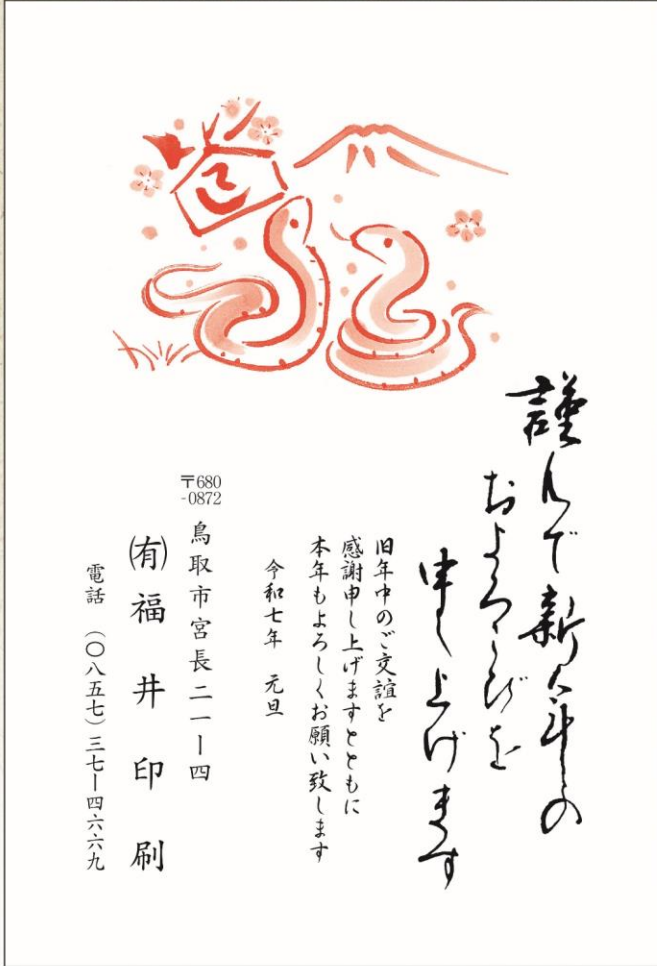 謹んで新年の
およろこびを
申し上げます
旧年中のご交誼を
感謝申し上げますとともに
本年もよろしくお願い致します
令和七年 元旦
〒680
-0872
鳥取市宮長二一ー四
(有)福井印刷
電話 (〇八五七)三七ー四六六九